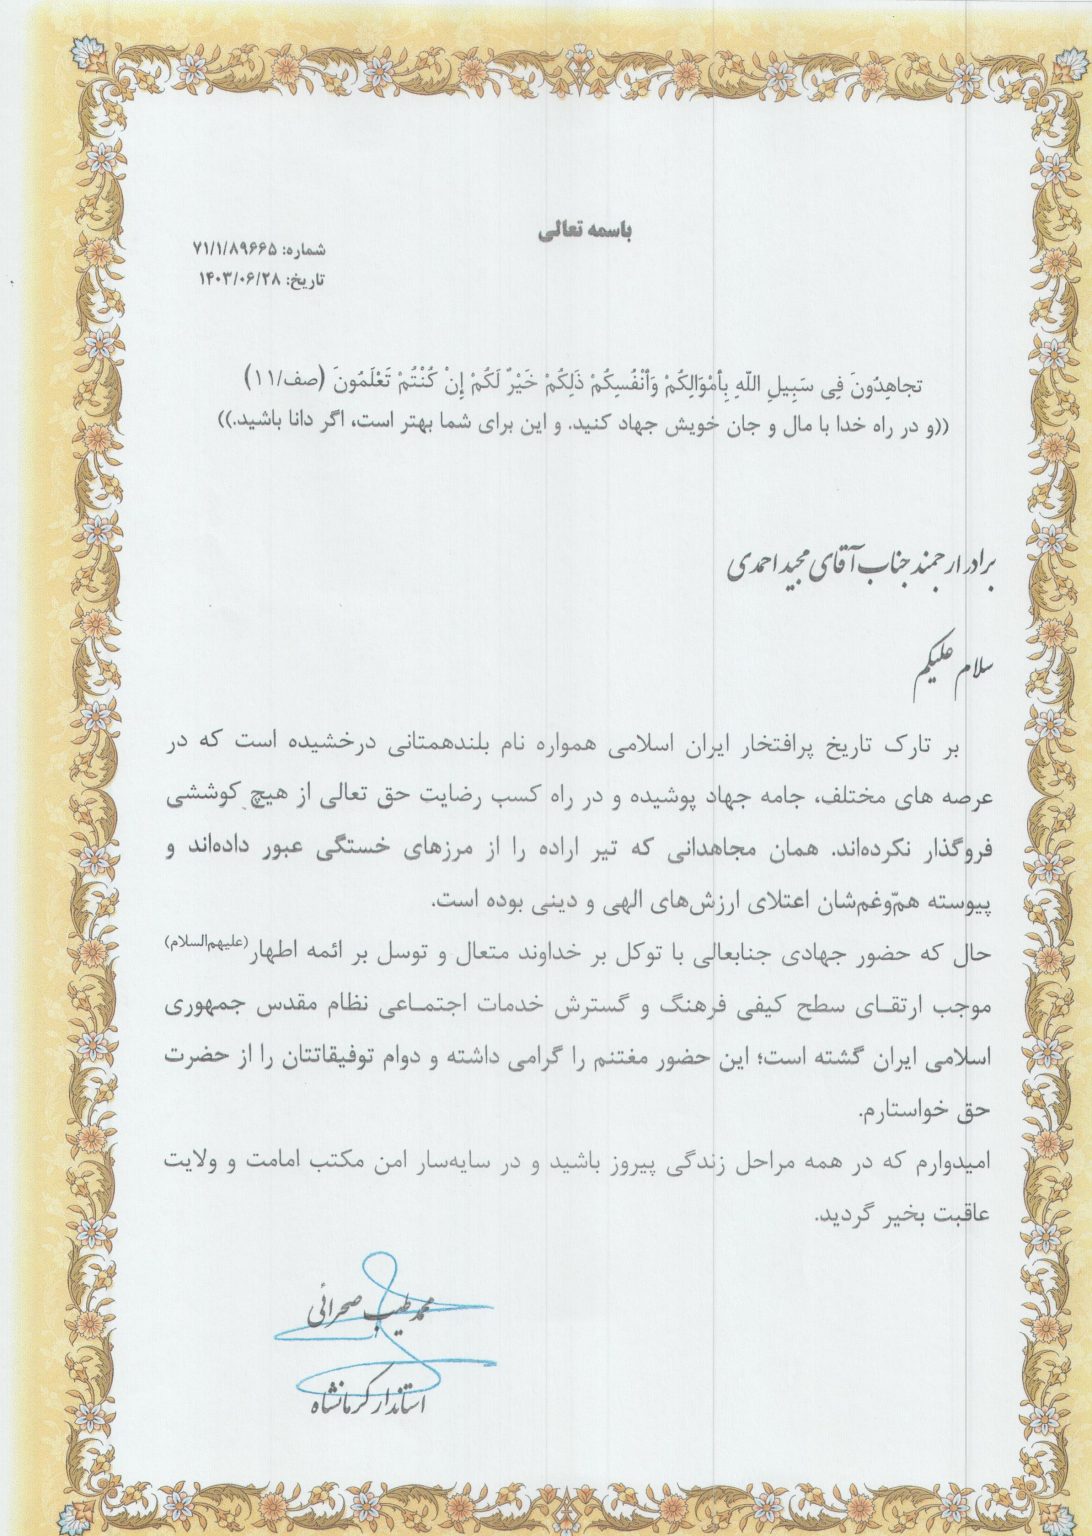 باسمه تعالی
شماره: ۷۱/۱/۸۹۶۶۵
تاریخ: ۱۴۰۳/۰۶/۲۸
تجاهِدُونَ فِی سَبِیلِ اللّهِ بِأَمْوَالِکُمْ وَأَنْفُسِکُمْ ذَلِکُمْ خَیْرٌ لَکُمْ إِنْ کُنْتُمْ تَعْلَمُونَ (صف/۱۱)
((و در راه خدا با مال و جان خویش جهاد کنید. و این برای شما بهتر است، اگر دانا باشید.))
برادر ارجمند جناب آقای مجید احمدی
سلام علیکم
بر تارک تاریخ پرافتخار ایران اسلامی همواره نام بلندهمتانی درخشیده است که در
عرصه های مختلف، جامه جهاد پوشیده و در راه کسب رضایت حق تعالی از هیچ کوششی
فروگذار نکرده‌اند. همان مجاهدانی که تیر اراده را از مرزهای خستگی عبور داده‌اند و
پیوسته همّ‌وغم‌شان اعتلای ارزش‌های الهی و دینی بوده است.
حال که حضور جهادی جنابعالی با توکل بر خداوند متعال و توسل بر ائمه اطهار(علیهم‌السلام)
موجب ارتقـای سطح کیفی فرهنگ و گسترش خدمات اجتمـاعی نظام مقدس جمهوری
اسلامی ایران گشته است؛ این حضور مغتنم را گرامی داشته و دوام توفیقاتتان را از حضرت
حق خواستارم.
امیدوارم که در همه مراحل زندگی پیروز باشید و در سایه‌سار امن مکتب امامت و ولایت
عاقبت بخیر گردید.
محمد طیب صحرائی
استاندار کرمانشاه